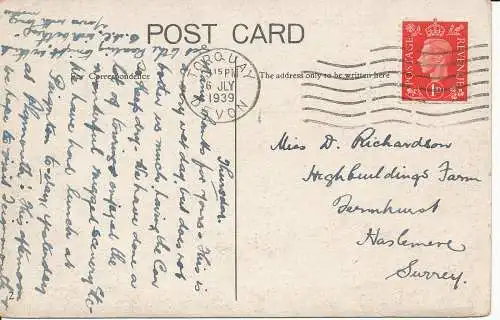 POST CARD
For Correspondence
The address only to be written here
TORQUAY
15 PM
6 JLY
1939
DEVON
POSTAGE
REVENUE
1D
Miss D. Richardson
Highbuildings Farm
Fernhurst
Haslemere
Surrey.
Thursday.
Many thanks for yours. This is
a very wet day, but does not
bother us much, having the Car
to keep dry. We have done a
lot of touring, enjoyed the
wonderful rugged scenery etc-
We have had lunch at
Paignton to-day, yesterday
at Plymouth. This afternoon
we hope to visit Teignmouth &
2